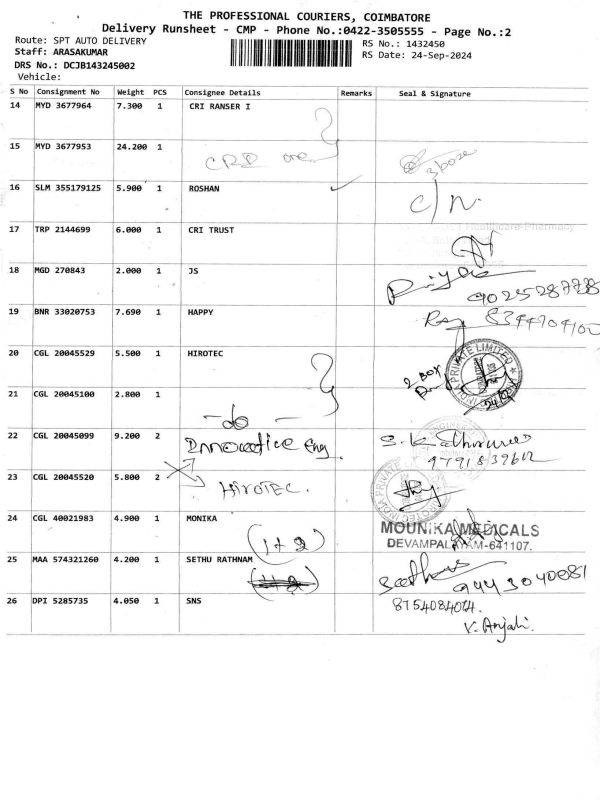 THE PROFESSIONAL COURIERS, COIMBATORE
Delivery Runsheet - CMP - Phone No.:0422-3505555 - Page No.:2
Route: SPT AUTO DELIVERY
RS No.: 1432450
Staff: ARASAKUMAR
RS Date: 24-Sep-2024
DRS No.: DCJB143245002
Vehicle:
S No Consignment No Weight PCS Consignee Details Remarks Seal & Signature
14 MYD 3677964 7.300 1 CRI RANSER I
15 MYD 3677953 24.200 1
16 SLM 355179125 5.900 1 ROSHAN C/N.
17 TRP 2144699 6.000 1 CRI TRUST
18 MGD 270843 2.000 1 JS
19 BNR 33020753 7.690 1 HAPPY
20 CGL 20045529 5.500 1 HIROTEC 2 Box
21 CGL 20045100 2.800 1 -do-
22 CGL 20045099 9.200 2 Innovative Eng
9791839612
23 CGL 20045520 5.800 2 HIROTEC.
24 CGL 40021983 4.900 1 MONIKA (1+2)
MOUNIKA MEDICALS
DEVAMPALAYAM-641107.
25 MAA 574321260 4.200 1 SETHU RATHNAM 9443040081
26 DPI 5285735 4.050 1 SNS
V. Anjali.